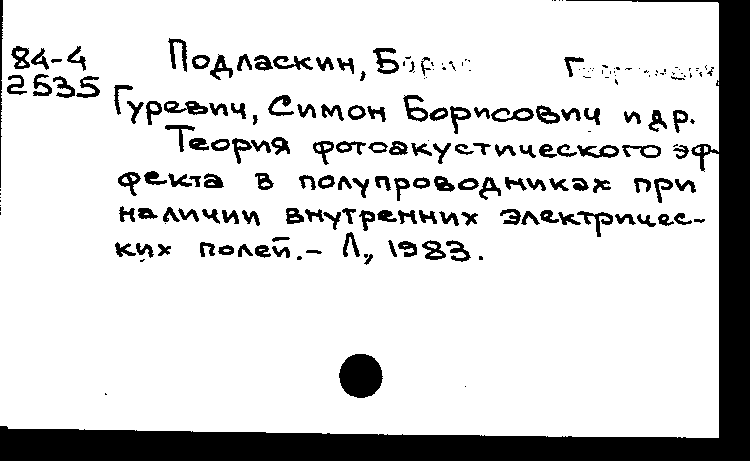 84-4
2535
Подласкин, Борис Георгиевич,
Гуревич, Симон Борисович и др.
Теория фотоакустического эф-
фекта в полупроводниках при
наличии внутренних электричес-
ких полей.- Л., 1983.